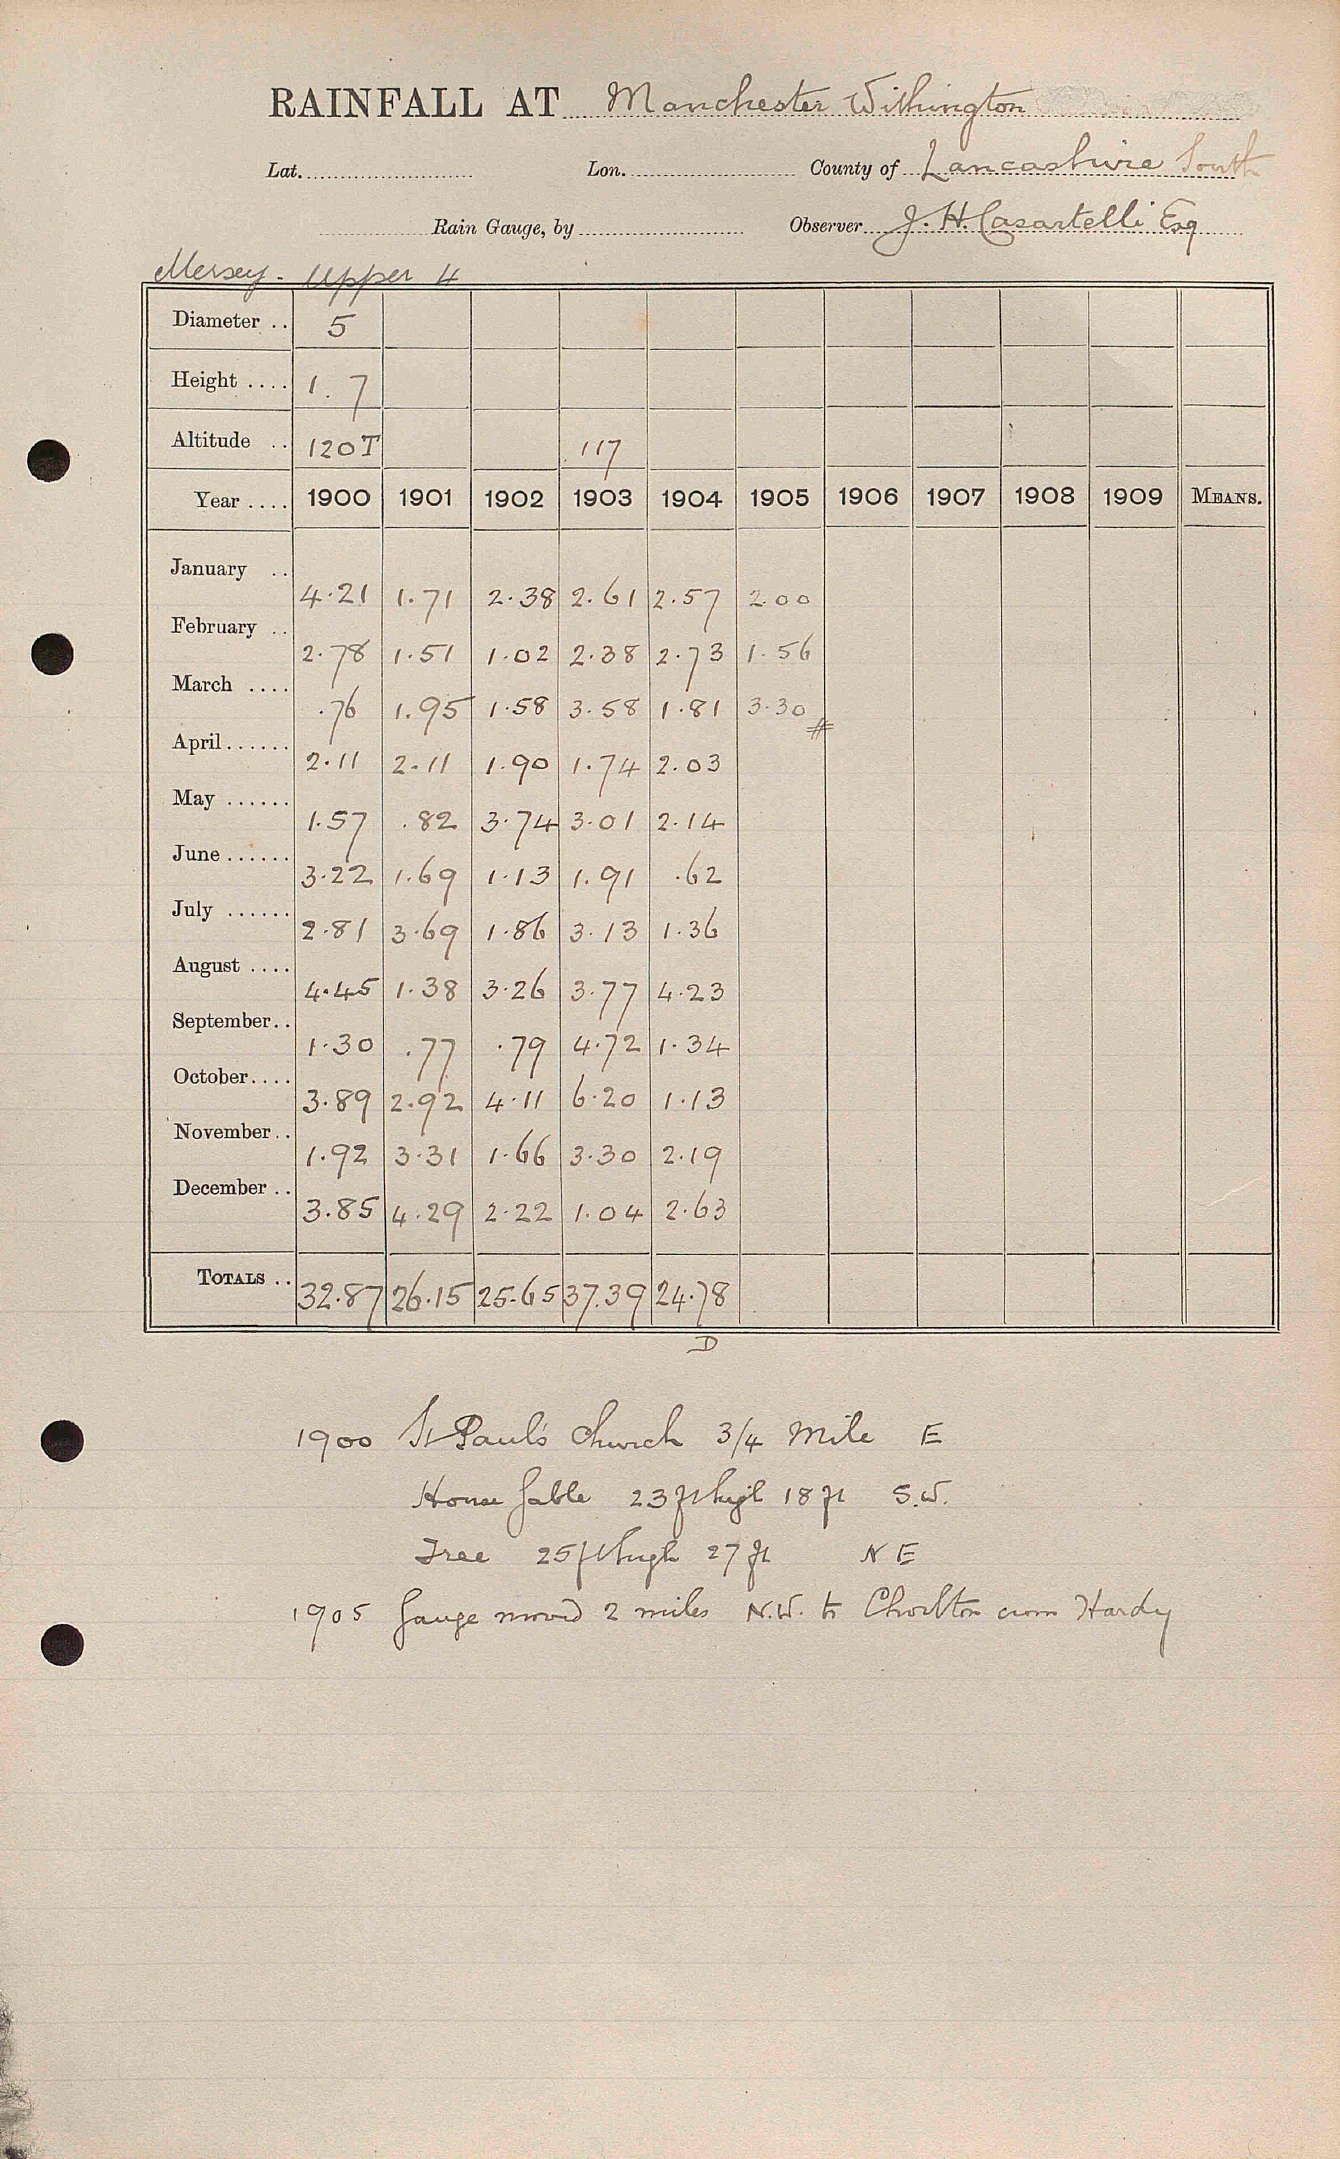 RAINFALL AT Manchester Withington
Lat. Lon. County of Lancashire South
Rain Gauge, by Observer J. H. Casartelli Esq
Mersey - Upper 4
Diameter .. 5
Height .... 1. 7
Altitude .. 120T 117
Year .... 1900 1901 1902 1903 1904 1905 1906 1907 1908 1909 MEANS.
January .. 4.21 1.71 2.38 2.61 2.57 2.00
February .. 2.78 1.51 1.02 2.38 2.73 1.56
March .... .76 1.95 1.58 3.58 1.81 3.30
April...... 2.11 2.11 1.90 1.74 2.03
May ...... 1.57 .82 3.74 3.01 2.14
June ...... 3.22 1.69 1.13 1.91 .62
July ...... 2.81 3.69 1.86 3.13 1.36
August .... 4.45 1.38 3.26 3.77 4.23
September.. 1.30 .77 .79 4.72 1.34
October.... 3.89 2.92 4.11 6.20 1.13
November.. 1.92 3.31 1.66 3.30 2.19
December .. 3.85 4.29 2.22 1.04 2.63
TOTALS .. 32.87 26.15 25.65 37.39 24.78
D
1900 St Paul's Church 3/4 Mile E
House Gable 23 ft high 18 ft S.W.
Tree 25 ft high 27 ft N E
1905 Gauge moved 2 miles N.W. to Chorlton cum Hardy